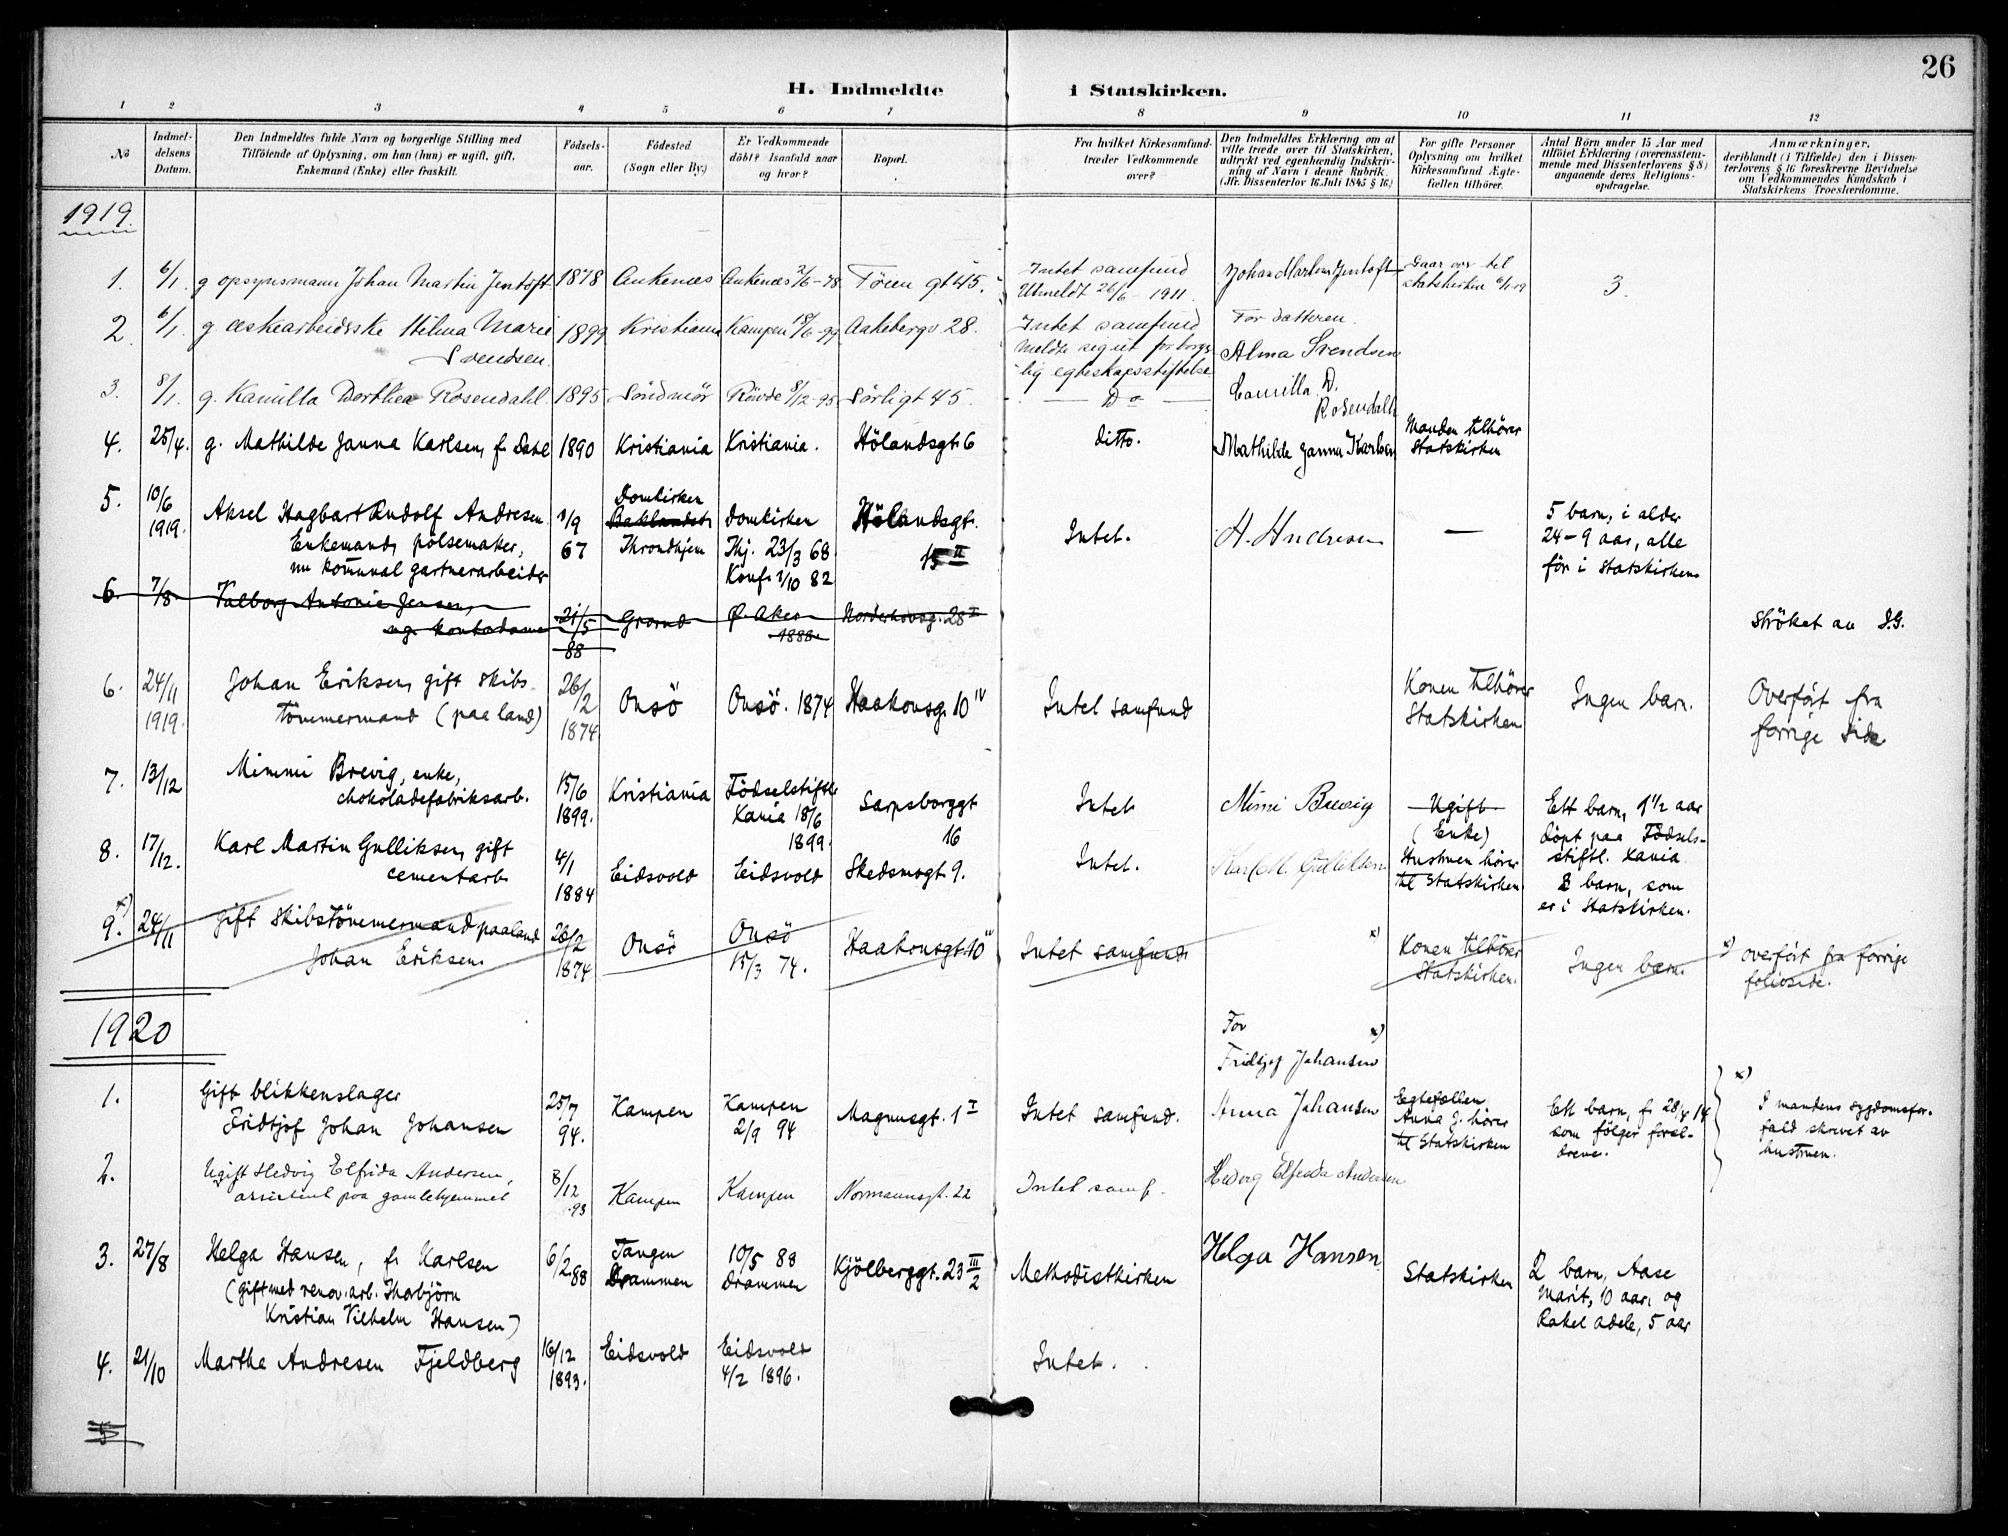 26
H. Indmeldte i Statskirken.
1 2 3 4 5 6 7 8 9 10 11 12
No
Indmel-
delsens
Datum.
Den Indmeldtes fulde Navn og borgerlige Stilling med
Tilföiende af Oplysning, om han (hun) er ugift, gift,
Enkemand (Enke) eller fraskilt.
Födsels-
aar.
Födested
(Sogn eller By.)
Er Vedkommende
döbt? Isaafald naar
og hvor?
Bopæl.
Fra hvilket Kirkesamfund
træder Vedkommende
over?
Den Indmeldtes Erklæring om at
ville træde over til Statskirken,
udtrykt ved egenhændig Indskriv-
ning af Navn i denne Rubrik.
(Jfr. Dissenterlov 16 Juli 1845 § 16.)
For gifte Personer
Oplysning om hvilket
Kirkesamfund Ægte-
fællen tilhörer.
Antal Börn under 15 Aar med
tilföiet Erklæring (overensstem-
mende med Dissenterlovens § 8)
angaaende deres Religions-
opdragelse.
Anmærkninger,
deriblandt (i Tilfælde) den i Dissen-
terlovens § 16 foreskrevne Bevidnelse
om Vedkommendes Kundskab i
Statskirkens Troeslærdomme.
1919.
1. 6/1. g opsynsmann Johan Martin Jentoft 1878 Ankenæs Ankenæs 2/6-78 Töien gt 45.
Intet samfund
Utmeldt 26/6 - 1911.
Johan Martin Jentoft
Gaar over til
statskirken 6/1-19
3.
2. 6/1. g. æskearbeiderske Hilma Marie
Svendsen.
1899 Kristiania Kampen 18/6-99 Aakebergv 28.
Intet samfund
meldte seg ut for borger-
lig egteskapsstiftelse
For datteren.
Alma Svendsen
3. 8/1. g. Kamilla Dorthea Rosendahl. 1895 Söndmör Rövde 8/12-95 Sörligt 45.
— Do —
Camilla D.
Rosendahl
4. 25/4. g. Mathilde Janna Karlsen, f. Dahl 1890 Kristiania Kristiania. Hölandsgt. 6 ditto. Mathilde Janna Karlsen
Manden tilhörer
Statskirken
5. 10/6
1919.
Aksel Hagbart Rudolf Andresen.
Enkemand, pölsemaker,
nu kommunal gartnerarbeider
1/9
67
Domkirken
Baklandet
Throndhjem
domkirken
Thj. 23/3 68.
Konf. 1/10 82
Hölandsgt.
15 II
Intet. H. Andresen —
5 barn, i alder
24-9 aar, alle
för i Statskirken.
6. 7/8. Valborg Antonie Jensen,
ug. kontordame
21/5
88
Grorud
Ø. Aker
1888.
Nordrehovsg. 28 II
Ströket av S.G.
6. 24/11
1919.
Johan Eriksen, gift skibs-
tömmermand (paa land)
26/2
1874.
Onsö Onsö. 1874 Haakonsg. 10 IV Intet samfund
Konen tilhörer
Statskirken
Ingen barn.
Overfört fra
forrige side
7. 13/12
Mimmi Brevig, enke,
chokoladefabriksarb.
15/6
1899.
Kristiania
Födselstiftl.
Xania 18/6
1899.
Sarpsborggt
16
Intet Mimi Brevig
Ugift
(Enke)
Ett barn, 1 1/2 aar
döpt paa Födsels-
stiftl. Xania.
8. 17/12.
Karl Martin Gulliksen, gift
cementarb.
4/1
1884
Eidsvold Eidsvold Skedsmogt. 9. Intet. Karl M. Gulliksen
Hustruen hörer
til Statskirken.
8 barn, som
er i Statskirken.
9. x) 24/11
gift skibstömmermand paa land
Johan Eriksen.
26/2
1874
Onsö
Onsö
15/3 74.
Haakonsgt. 10 IV Intet samfund. x)
Konen tilhörer
Statskirken.
Ingen barn.
x) overfört fra forrige
folioside.
1920
1.
Gift blikkenslager
Fridtjof Johan Johansen
25/7
94.
Kampen
Kampen
2/9 94
Magnusgt. 1 I Intet samfund.
For x)
Fridtjof Johansen
Anna Johansen
Egtefællen
Anna J. hörer
til Statskirken
Ett barn, f. 28/4 14
som fölger foræl-
drene.
x)
I mandens sygdomsfor-
fald skrevet av
hustruen.
2.
Ugift Hedvig Elfrida Andersen,
assistent paa gamlehjemmet
8/12
93
Kampen Kampen Normannsgt. 22 Intet samf. Hedvig Elfrida Andersen
3. 27/8
Helga Hansen, f. Karlsen
(gift med renov. arb. Thorbjörn
Kristian Vilhelm Hansen)
6/2 88
Tangen
Drammen
10/5 88
Drammen
Kjölberggt. 23 III/2 Methodistkirken Helga Hansen. Statskirken
2 barn, Aase
Marit, 10 aar, og
Rakel Adele, 5 aar
4. 21/10 Martha Andresen Fjeldberg
16/12
1893.
Eidsvold
Eidsvold
4/2 1896.
Intet.
5